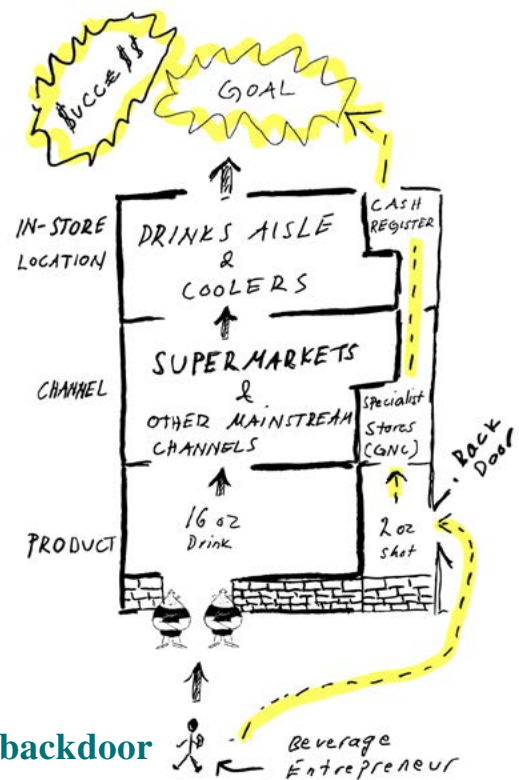 $UCCE$$
GOAL
IN-STORE
LOCATION
DRINKS AISLE
&
COOLERS
CASH
REGISTER
CHANNEL
SUPERMARKETS
&
OTHER MAINSTREAM
CHANNELS
Specialist
Stores
(GNC)
Back
Door
PRODUCT
16 oz
Drink
2 oz
shot
backdoor
Beverage
Entrepreneur